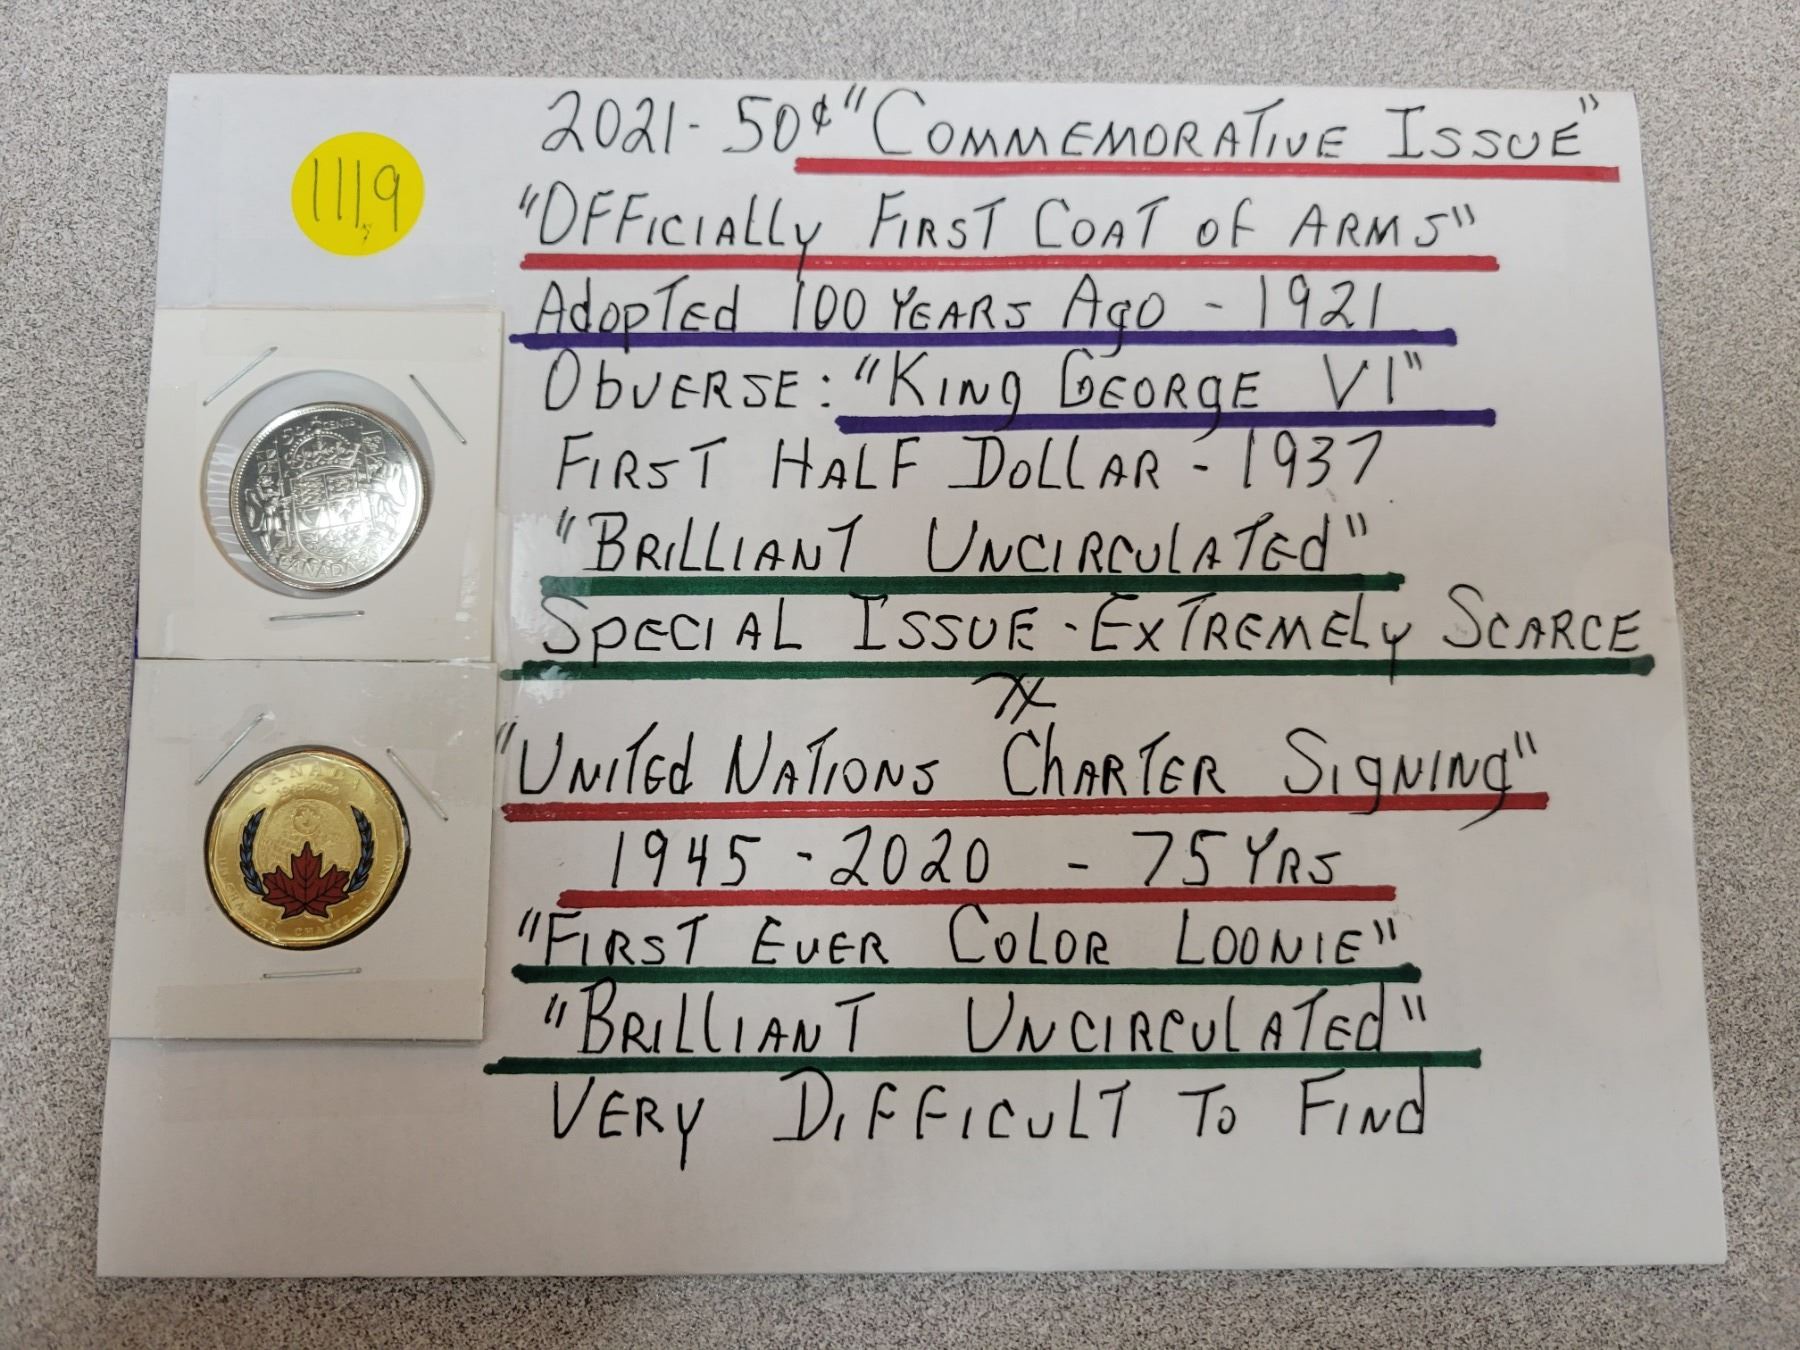 1119
2021-50¢ "COMMEMORATIVE ISSUE"
"OFFICIALLY FIRST COAT OF ARMS"
ADOPTED 100 YEARS AGO - 1921
OBVERSE: "KING GEORGE VI"
FIRST HALF DOLLAR - 1937
"BRILLIANT UNCIRCULATED"
SPECIAL ISSUE - EXTREMELY SCARCE
"UNITED NATIONS CHARTER SIGNING"
1945 - 2020 - 75 YRS
"FIRST EVER COLOR LOONIE"
"BRILLIANT UNCIRCULATED"
VERY DIFFICULT TO FIND
50 CENTS
CANADA
CANADA
1945-2020